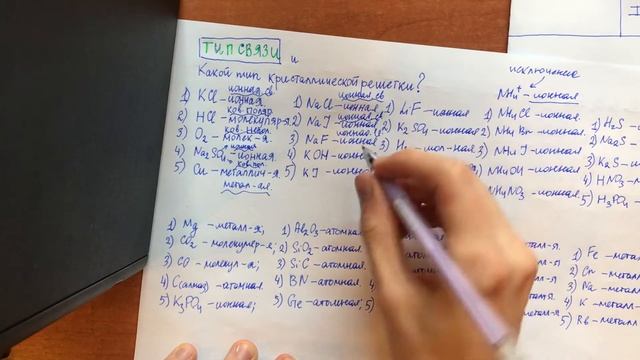 ТИП СВЯЗИ и
Какой тип кристаллической решетки?
исключение
NH₄⁺ – ионная.
ионная св
1) KCl – ионная
ков. поляр.
2) HCl – молекуляр-я.
ков. непол.
3) O₂ – молек-я.
ионная
4) Na₂SO₄ – ионная.
ков. пол.
5) Cu – металлич-я.
металл-ая.
ионная св
1) NaCl – ионная.
ионная св
2) NaI – ионная
ионная св
3) NaF – ионная.
4) KOH – ионн
5) KI – ионна
1) LiF – ионная
2) K₂SO₄ – ионная
3) H₂ – мол-ная.
1) NH₄Cl – ионная.
2) NH₄Br – ионная.
3) NH₄I – ионная
NH₄OH – ионная
NH₄NO₃ – ионная.
1) H₂S –
2) Na₂S –
3) K₂S –
4) HNO₃ –
5) H₃PO₄ –
1) Mg – металл-я;
2) CO₂ – молекуляр-я;
3) CO – молекул-я;
4) C(алмаз) – атомная.
5) K₃PO₄ – ионная;
1) Al₂O₃ – атомная.
2) SiO₂ – атомная.
3) SiC – атомная.
4) BN – атомная.
5) Ge – атомная;
4)
5)
1) Fe – мета
2) Cr – металл
3) Na – металл
4) K – металл
5) Rb – металл